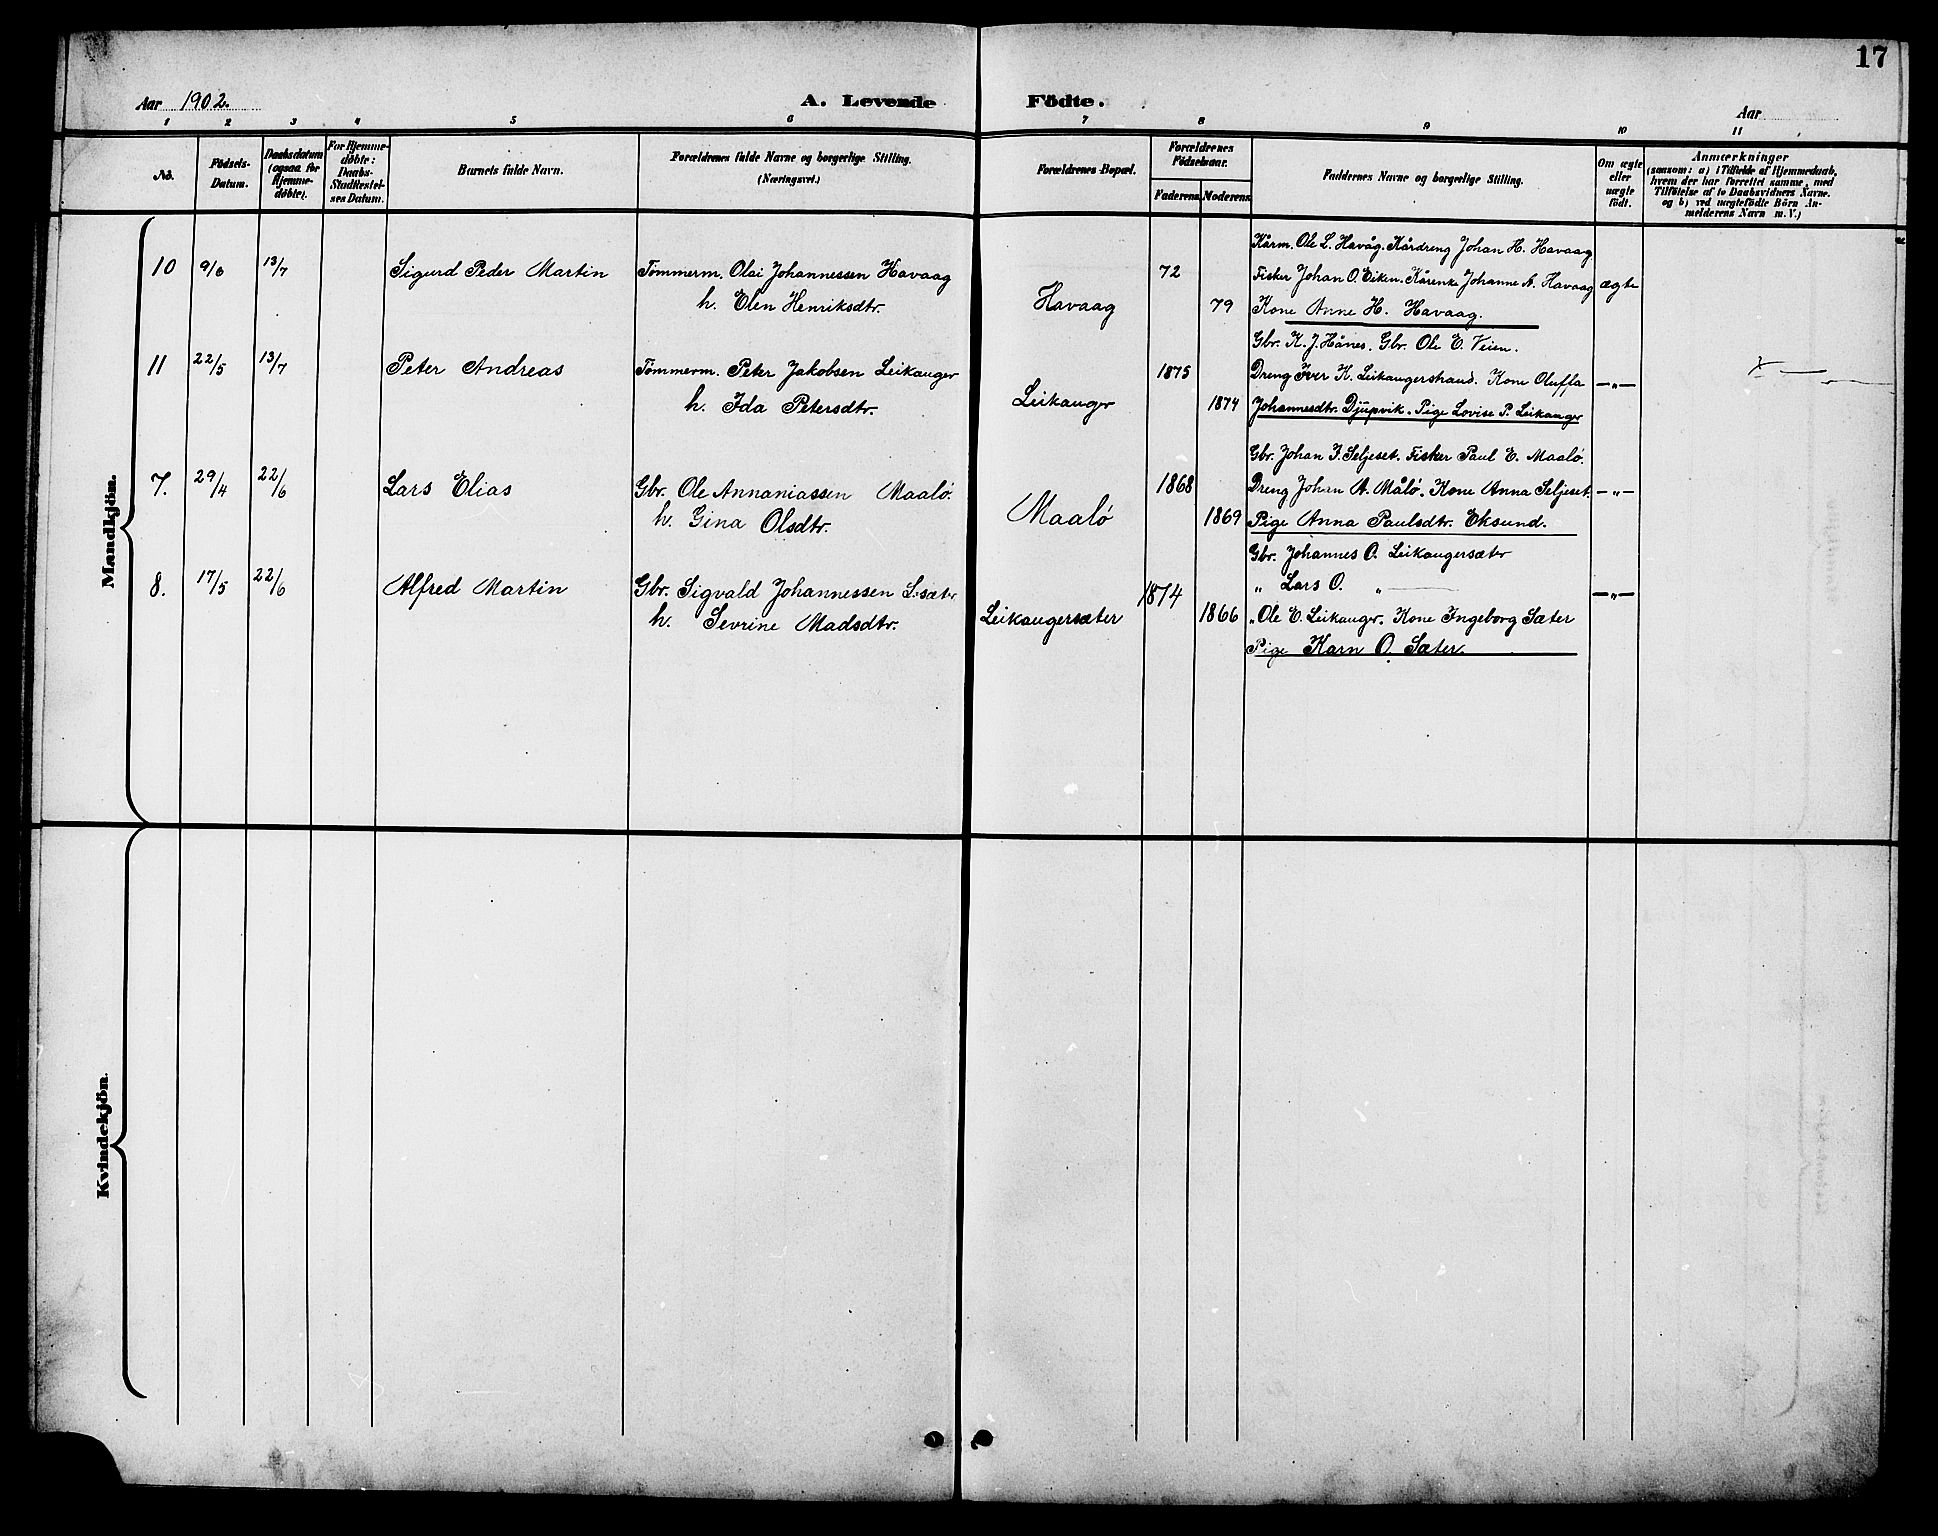 17
Aar 1902.
A. Levende Födte.
Aar
1 2 3 4 5 6 7 8 9 10 11
No.
Födsels-
Datum.
Daabsdatum
(ogsaa for
Hjemme-
döbte).
For Hjemme-
döbte:
Daabs-
Stadfæstel-
ses Datum.
Barnets fulde Navn.
Forældrenes fulde Navne og borgerlige Stilling.
(Næringsvei.)
Forældrenes Bopæl.
Forældrenes
Födselsaar.
Faderens
Moderens
Faddernes Navne og borgerlige Stilling.
Om ægte
eller
uægte
födt.
Anmærkninger
(saasom: a) i Tilfælde af Hjemmedaab,
hvem der har forrettet samme, med
Tilföielse af to Daabsvidners Navne.
og b) ved uægtefödte Börn An-
melderens Navn m. V.)
Mandkjön.
Kårm. Ole L. Havåg. Kårdreng Johan H. Havaag
10 9/6 13/7 Sigurd Peder Martin Tömmerm. Olai Johannessen Havaag 72 Fisker Johan O. Eiken. Kårenke Johanne A. Havaag ægte
h. Elen Henriksdtr. Havaag 79 Kone Anne H. Havaag.
Gbr. K. J. Hånes. Gbr. Ole E. Veien.
11 22/5 13/7 Peter Andreas Tömmerm. Peter Jakobsen Leikanger 1875 Dreng Iver K. Leikangerstrand. Kone Oluffa —„—
h. Ida Petersdtr. Leikanger 1874 Johannesdtr. Djupvik. Pige Lovise P. Leikanger
Gbr. Johan J. Seljeset. Fisker Paul E. Maalö.
7. 29/4 22/6 Lars Elias Gbr. Ole Annaniassen Maalö. 1868 Dreng Johan A. Målö. Kone Anna Seljeset. —„—
h. Gina Olsdtr. Maalö 1869 Pige Anna Paulsdtr. Eksund.
Gbr. Johannes O. Leikangersæter
„ Lars O. „
8. 17/5 22/6 Alfred Martin Gbr. Sigvald Johannessen L.sæter 1874 —„—
h. Sevrine Madsdtr. Leikangersæter 1866 „ Ole E. Leikanger. Kone Ingeborg Sæter
Pige Karn O. Sæter.
Kvindekjön.